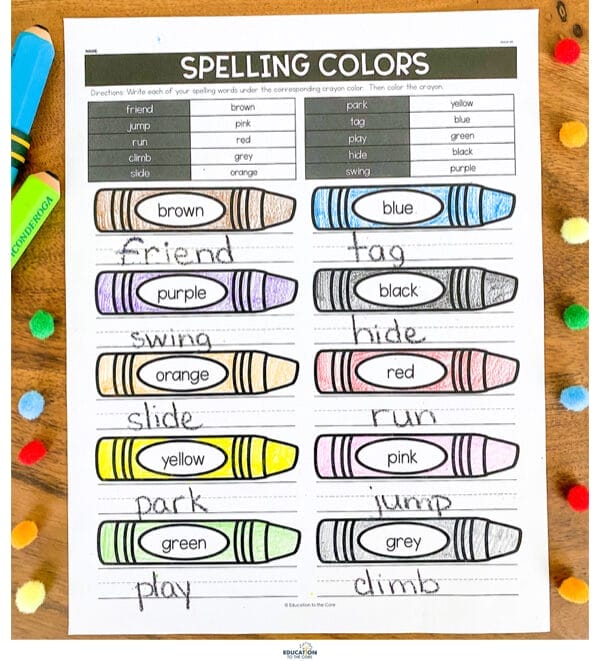 NAME
SPELLING COLORS
Directions: Write each of your spelling words under the corresponding crayon color. Then color the crayon.
friend brown park yellow
jump pink tag blue
run red play green
climb grey hide black
slide orange swing purple
brown blue
friend tag
purple black
swing hide
orange red
slide run
yellow pink
park jump
green grey
play climb
© Education to the Core
TICONDEROGA
EDUCATION
TO THE CORE